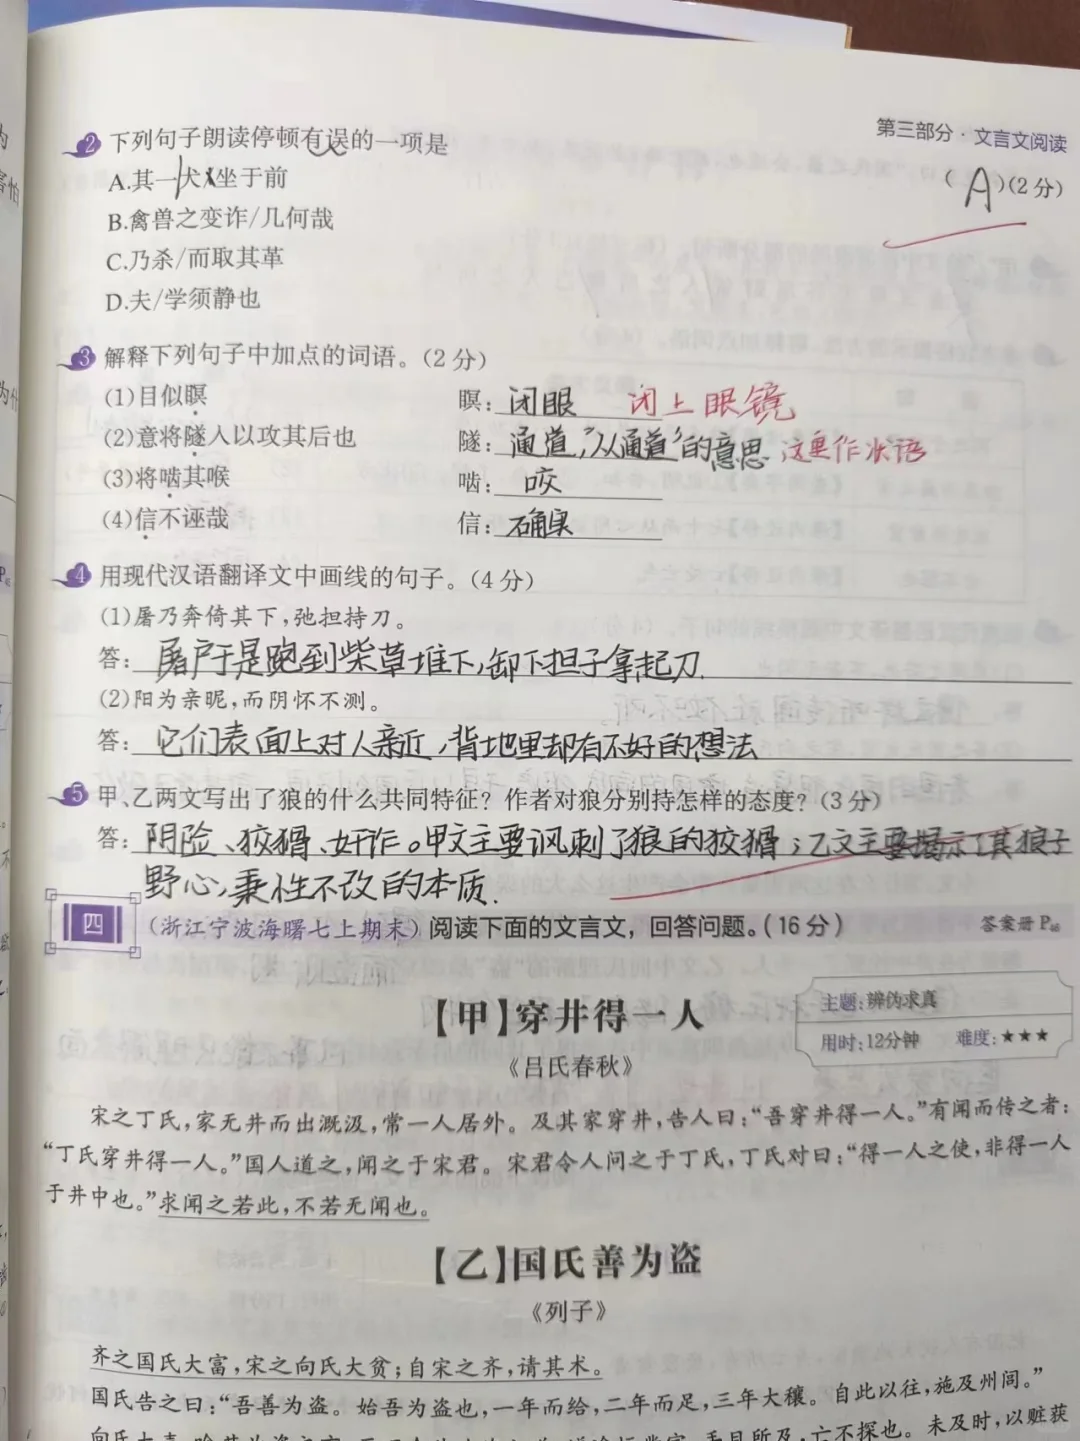 第三部分·文言文阅读
2 下列句子朗读停顿有误的一项是
(A)(2分)
A.其一犬/坐于前
B.禽兽之变诈/几何哉
C.乃杀/而取其革
D.夫/学须静也
3 解释下列句子中加点的词语。(2分)
(1)目似瞑 瞑: 闭眼 闭上眼镜
(2)意将隧人以攻其后也 隧: 通道,“从通道”的意思 这里作状语
(3)将啮其喉 啮: 咬
(4)信不诬哉 信: 确实
4 用现代汉语翻译文中画线的句子。(4分)
(1)屠乃奔倚其下,弛担持刀。
答: 屠户于是跑到柴草堆下,卸下担子拿起刀.
(2)阳为亲昵,而阴怀不测。
答: 它们表面上对人亲近,背地里却有不好的想法
5 甲、乙两文写出了狼的什么共同特征?作者对狼分别持怎样的态度?(3分)
答: 阴险、狡猾、奸诈。甲文主要讽刺了狼的狡猾;乙文主要揭示了其狼子
野心,秉性不改的本质.
四 (浙江宁波海曙七上期末)阅读下面的文言文,回答问题。(16分) 答案册P46
【甲】穿井得一人
主题:辨伪求真
用时:12分钟 难度:★★★
《吕氏春秋》
宋之丁氏,家无井而出溉汲,常一人居外。及其家穿井,告人曰:“吾穿井得一人。”有闻而传之者:
“丁氏穿井得一人。”国人道之,闻之于宋君。宋君令人问之于丁氏,丁氏对曰:“得一人之使,非得一人
于井中也。”求闻之若此,不若无闻也。
【乙】国氏善为盗
《列子》
齐之国氏大富,宋之向氏大贫;自宋之齐,请其术。
国氏告之曰:“吾善为盗。始吾为盗也,一年而给,二年而足,三年大穰。自此以往,施及州闾。”
手目所及,亡不探也。未及时,以赃获